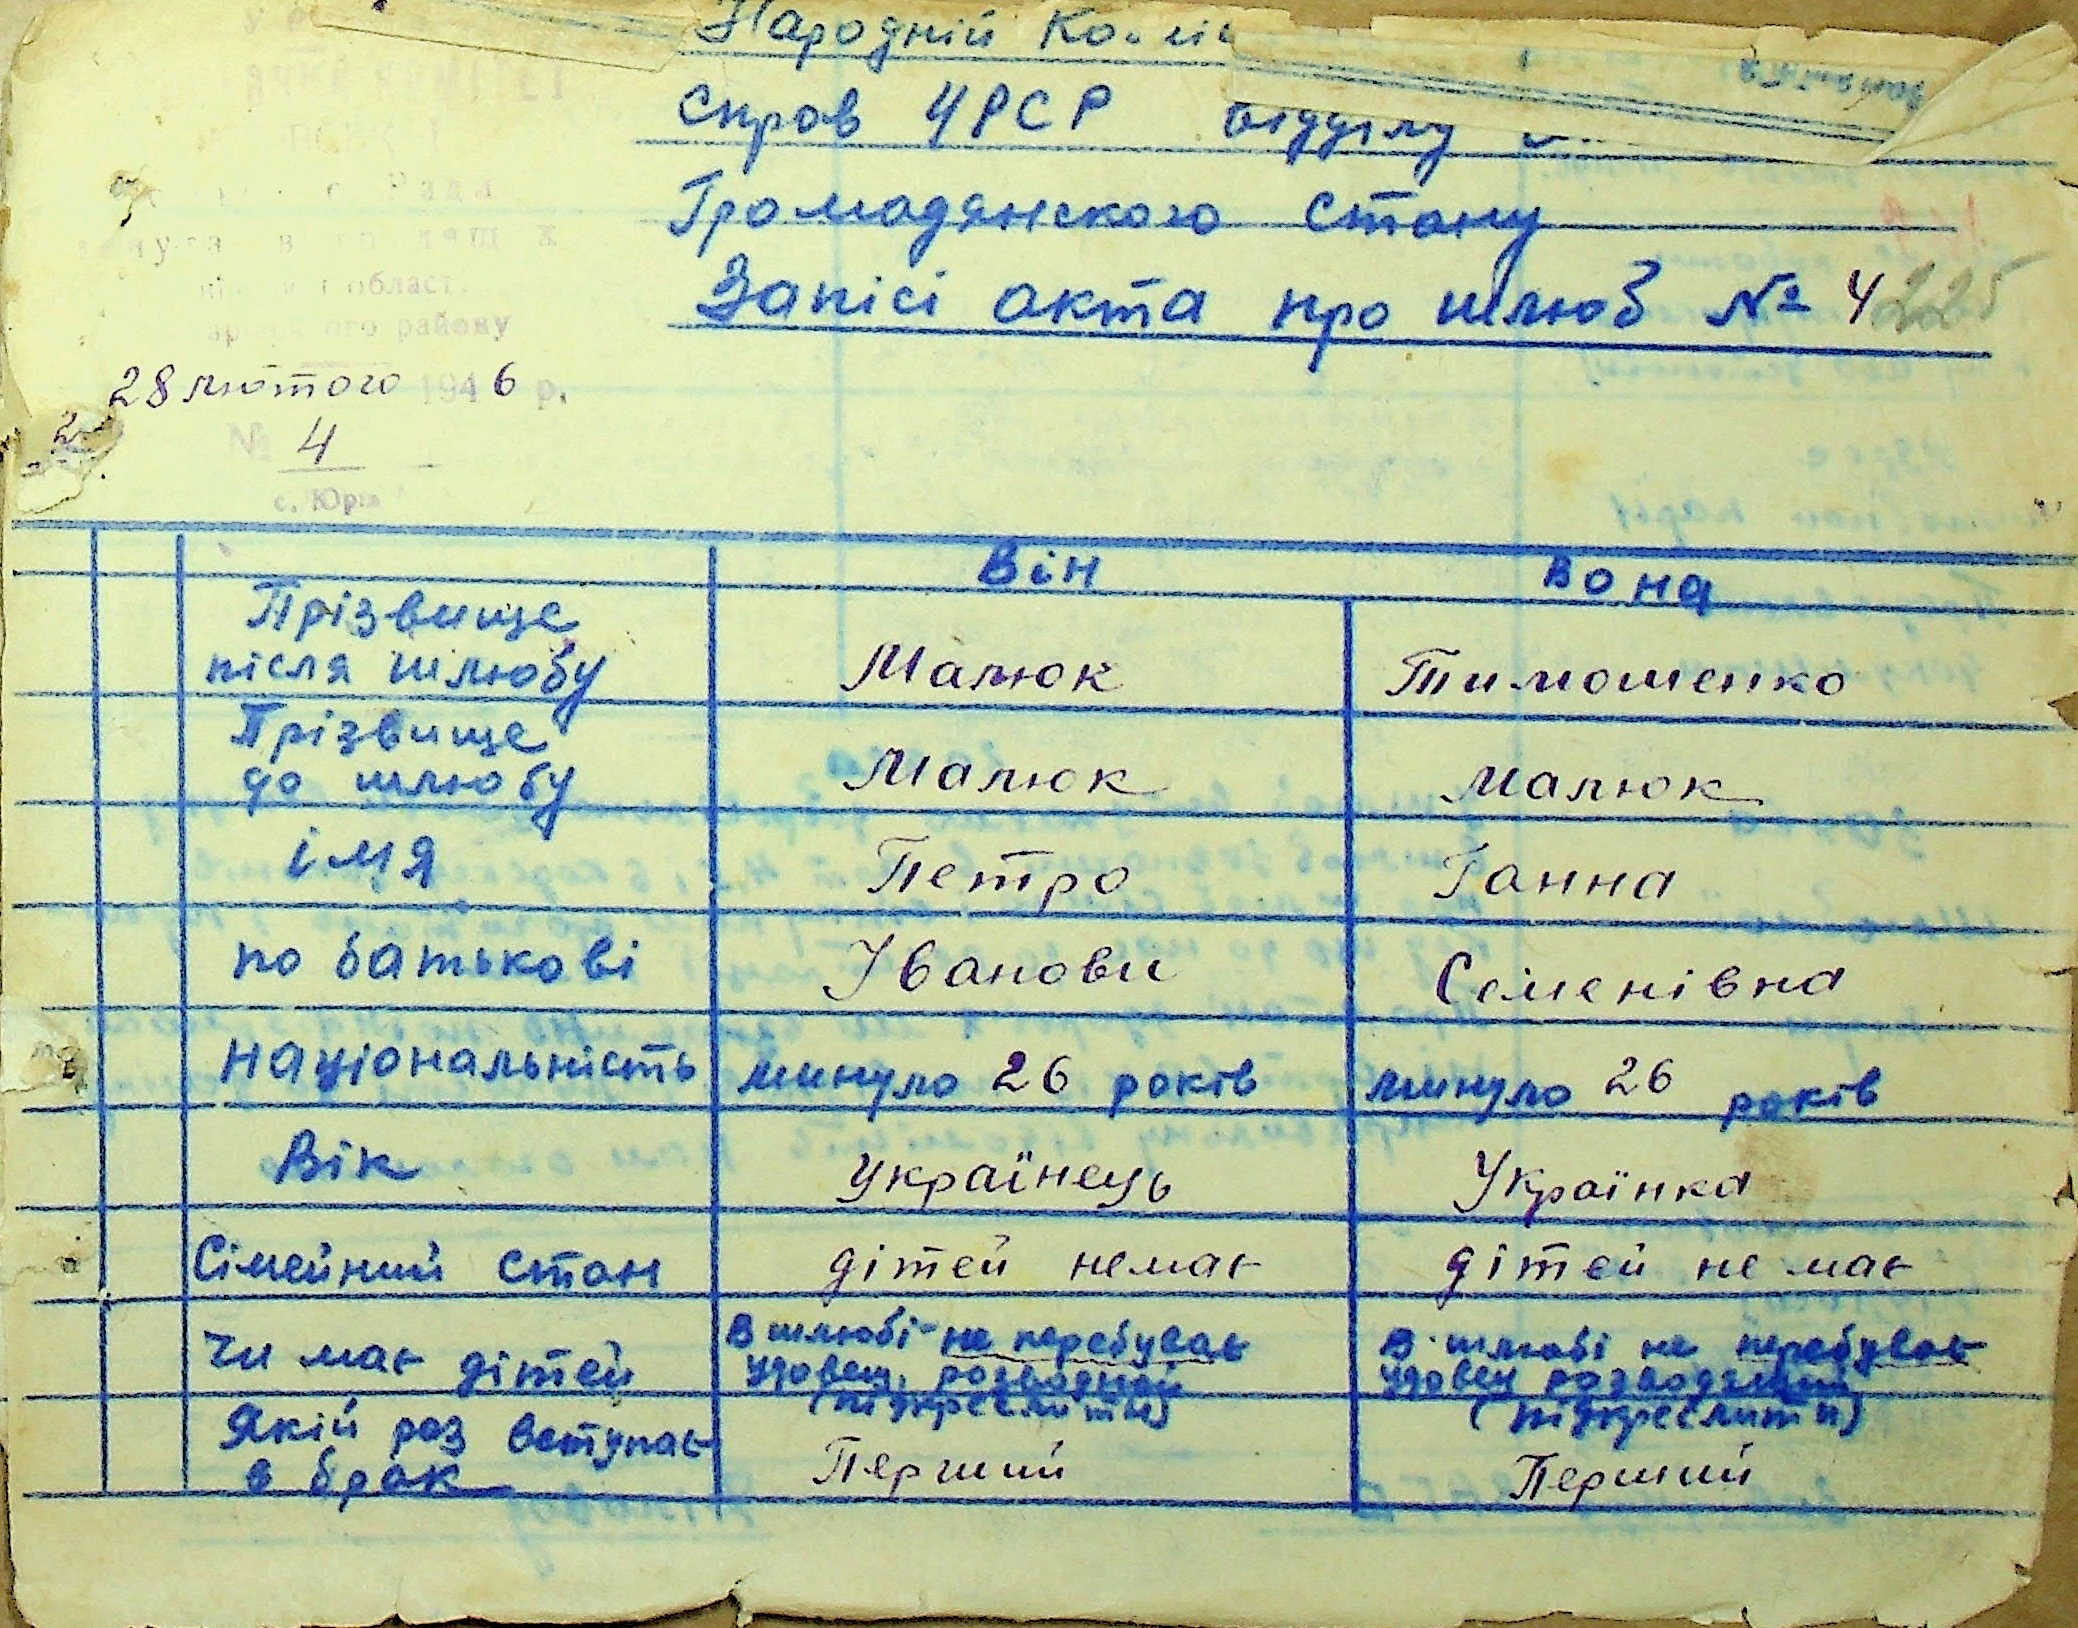 Народній Ко
Спров УРСР відділу
Громадянского Стану
Запісі акта про шлюб № 4 225
област.
району
28 лютого 1946 р.
№ 4
с. Юр
Він Вона
Прізвище
після шлюбу Малюк Тимошенко
Прізвище
до шлюбу Малюк Малюк
імя Петро Ганна
по батькові Іванови Семенівна
національність минуло 26 років минуло 26 років
Вік українець Українка
Сімейний стан дітей немає дітей не має
Чи має дітей В шлюбі не перебуває В шлюбі не перебуває
удовец, розводний удовец розводяний
(підкреслити) (підкреслити)
Якій роз вступає Перший Перший
в брак